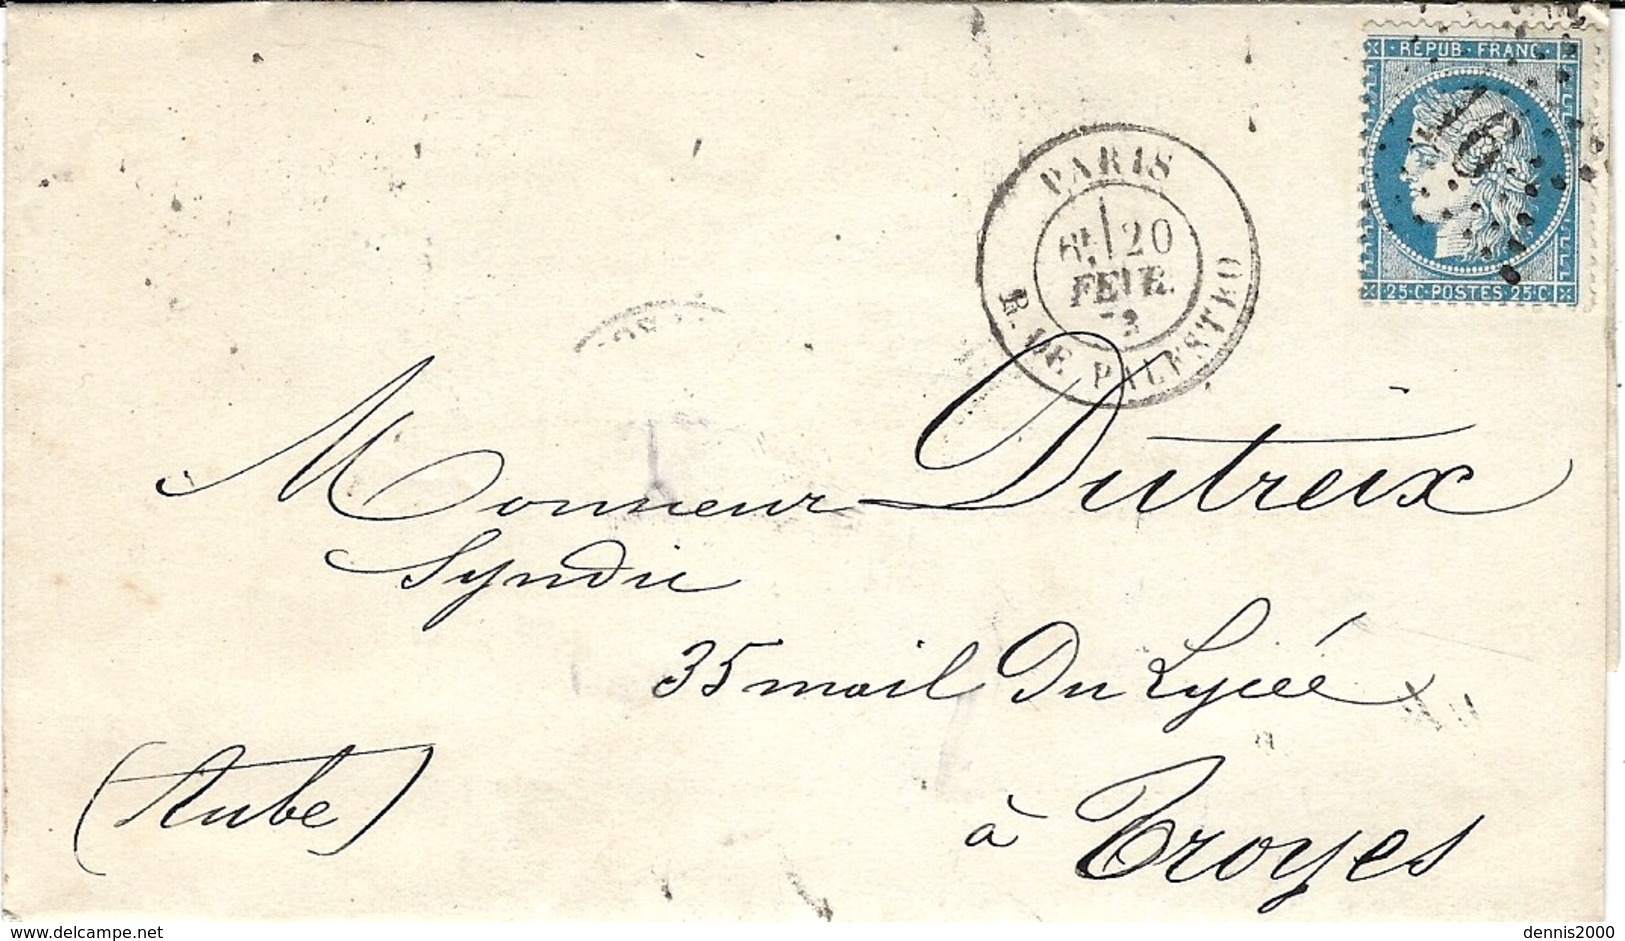 · REPUB · FRANC ·
16
25·C·POSTES·25·C
PARIS
20
FEVR.
R. DE PALESTRO
Monsieur Dutreix
Syndic
35 mail du Lycée
à Troyes
(Aube)
www.delcampe.net
dennis2000